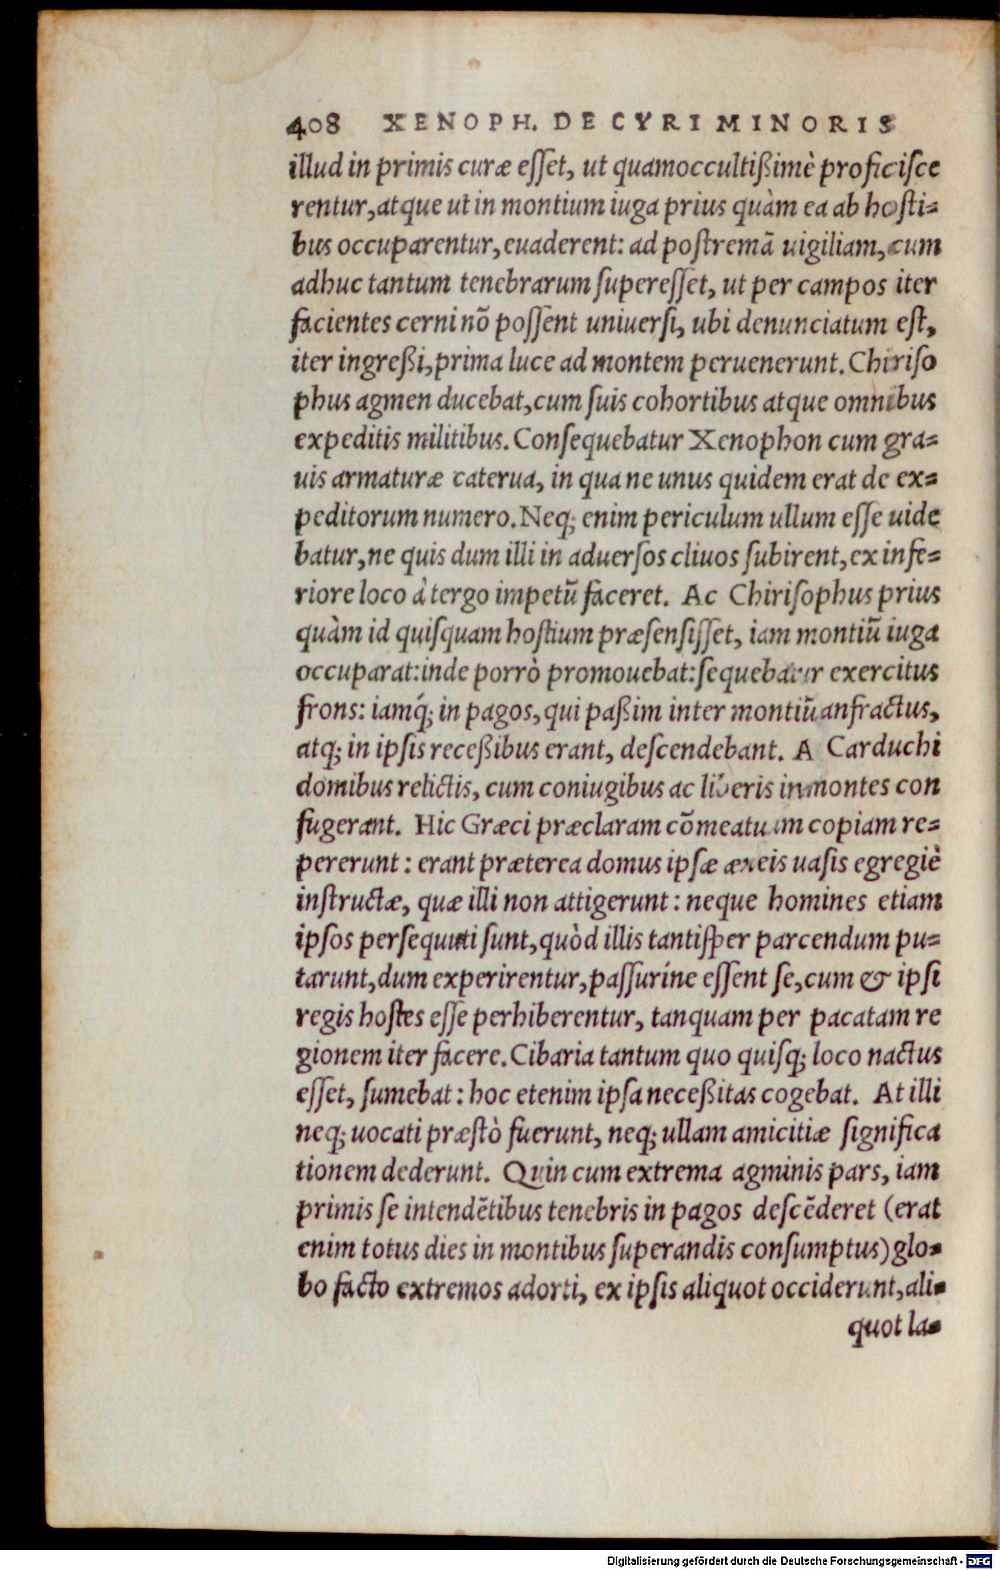 408 XENOPH. DE CYRI MINORIS
illud in primis curæ eſſet, ut quamoccultißimè proficiſce
rentur, atque ut in montium iuga prius quàm ea ab hoſti-
bus occuparentur, euaderent: ad poſtremã uigiliam, cum
adhuc tantum tenebrarum ſupereſſet, ut per campos iter
facientes cerni nõ poſſent uniuerſi, ubi denunciatum eſt,
iter ingreßi, prima luce ad montem peruenerunt. Chiriſo
phus agmen ducebat, cum ſuis cohortibus atque omnibus
expeditis militibus. Conſequebatur Xenophon cum gra-
uis armaturæ caterua, in qua ne unus quidem erat de ex-
peditorum numero. Neq; enim periculum ullum eſſe uide
batur, ne quis dum illi in aduerſos cliuos ſubirent, ex infe-
riore loco à tergo impetũ faceret. Ac Chiriſophus prius
quàm id quiſquam hoſtium præſenſiſſet, iam montiũ iuga
occuparat: inde porrò promouebat: ſequebatur exercitus
frons: iamq́; in pagos, qui paßim inter montiũ anfractus,
atq; in ipſis receßibus erant, deſcendebant. A Carduchi
domibus relictis, cum coniugibus ac liberis in montes con
fugerant. Hic Græci præclaram cõmeatuum copiam re-
pererunt: erant præterea domus ipſæ æneis uaſis egregiè
inſtructæ, quæ illi non attigerunt: neque homines etiam
ipſos perſequuti ſunt, quòd illis tantiſper parcendum pu-
tarunt, dum experirentur, paſſuríne eſſent ſe, cum & ipſi
regis hoſtes eſſe perhiberentur, tanquam per pacatam re
gionem iter facere. Cibaria tantum quo quiſq; loco nactus
eſſet, ſumebat: hoc etenim ipſa neceßitas cogebat. At illi
neq; uocati præſtò fuerunt, neq; ullam amicitiæ ſignifica
tionem dederunt. Quin cum extrema agminis pars, iam
primis ſe intendẽtibus tenebris in pagos deſcẽderet (erat
enim totus dies in montibus ſuperandis conſumptus) glo-
bo facto extremos adorti, ex ipſis aliquot occiderunt, ali-
quot la-
Digitalisierung gefördert durch die Deutsche Forschungsgemeinschaft - DFG